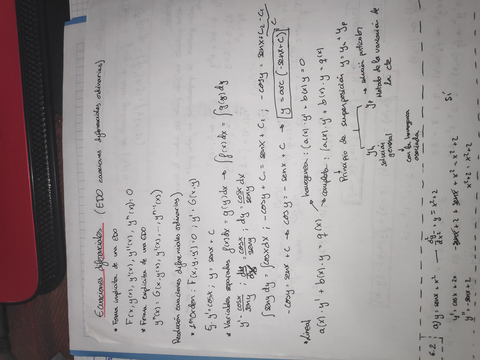 Ecuaciones diferenciales (EDO ecuaciones diferenciales ordinarias)
* Forma implícita de una EDO
F(x, y(x), y'(x), y''(x), yⁿ(x)) = 0
* Forma explícita de una EDO
yⁿ(x) = G(x, y(x), y'(x), ..., yⁿ⁻¹(x))
Resolución ecuaciones diferenciales ordinarias)
* 1er Orden: F(x, y, y') = 0; y' = G(x, y)
Ej. y' = cosx; y = senx + C
* Variables separadas f(x)dx = g(y)dy → ∫f(x)dx = ∫g(y)dy
y' = cosx/seny; dy/dx = cosx/seny; dy = cosxdx/seny
∫seny dy = ∫cosx dx; -cosy + C₁ = senx + C₂; -cosy = senx + C₂ - C₁
-cosy = senx + C → cosy = -senx + C → y = arc(-senx + C)
* Lineal
a(x) y' + b(x) y = g(x)
homogénea: (a(x) · y' + b(x) y = 0
completa: (a(x) · y' + b(x) · y = g(x)
Principio de superposición y = yh + yp
yh solución general
con la homogénea asociada
yp → solución particular
Método de la variación de la cte
a) y = senx + x²
dy/dx · y = x² + 2
y' = cosx + 2x
y'' = -senx + 2
-senx + 2 + senx + x² = x² + 2
x² + 2 = x² + 2
Sí